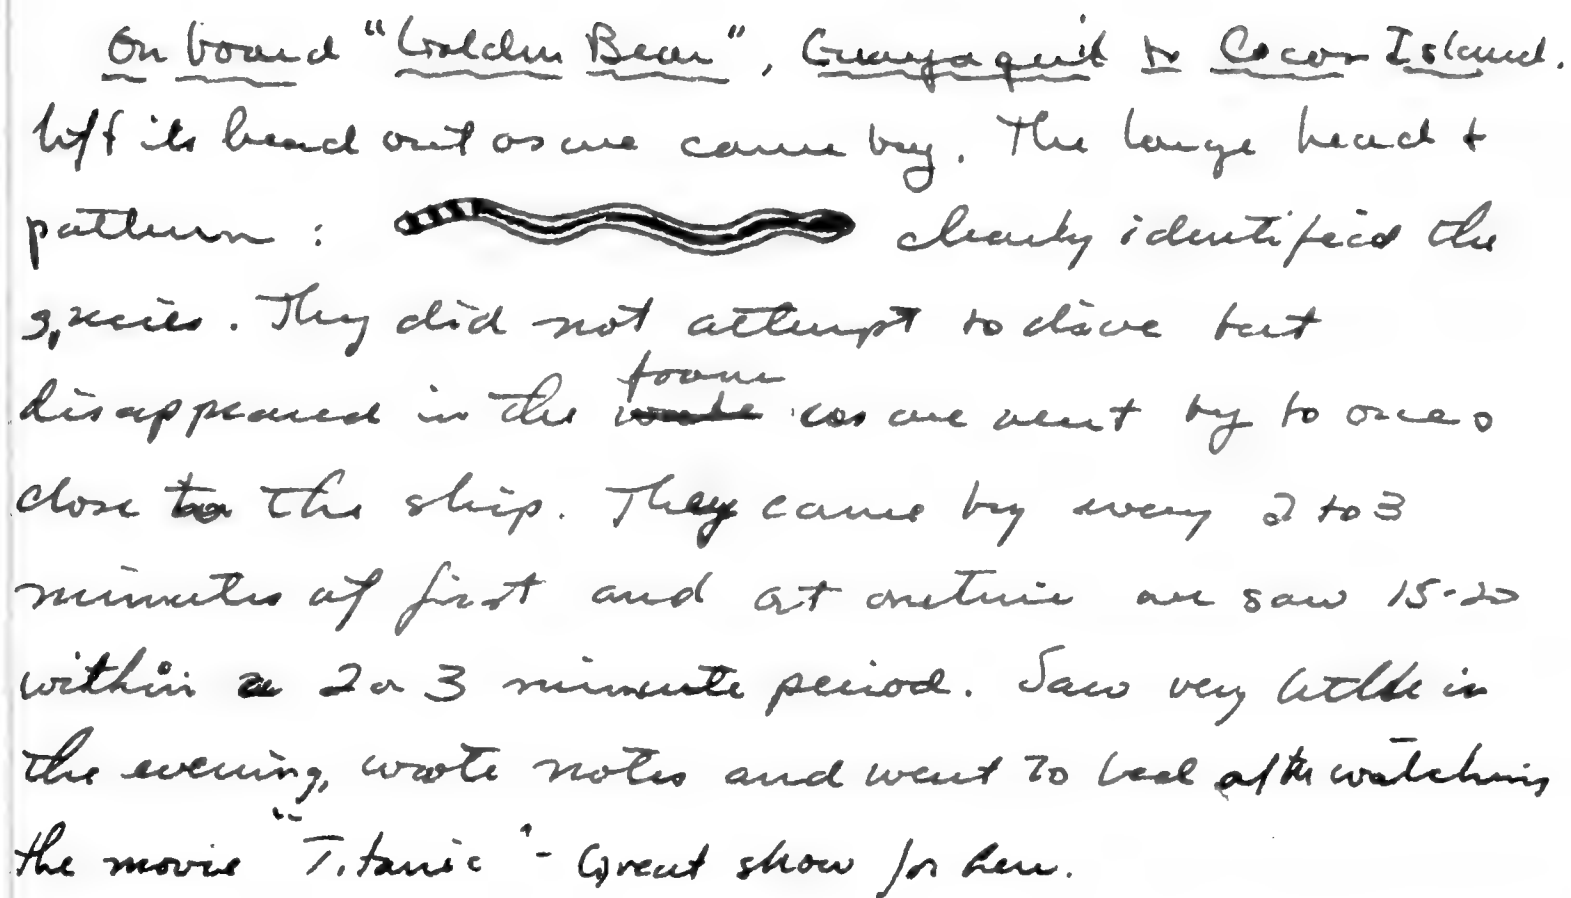 On board "Golden Bear", Guayaquil to Cocos Island.
lift its head out as we came by. The large head +
pattern : clearly identified the
species. They did not attempt to dive but
disappeared in the foam as we went by to once
close to the ship. They came by every 2 to 3
minutes at first and at onetime we saw 15-20
within a 2 or 3 minute period. Saw very little in
the evening, wrote notes and went to bed after watching
the movie "Titanic" - Great show for here.